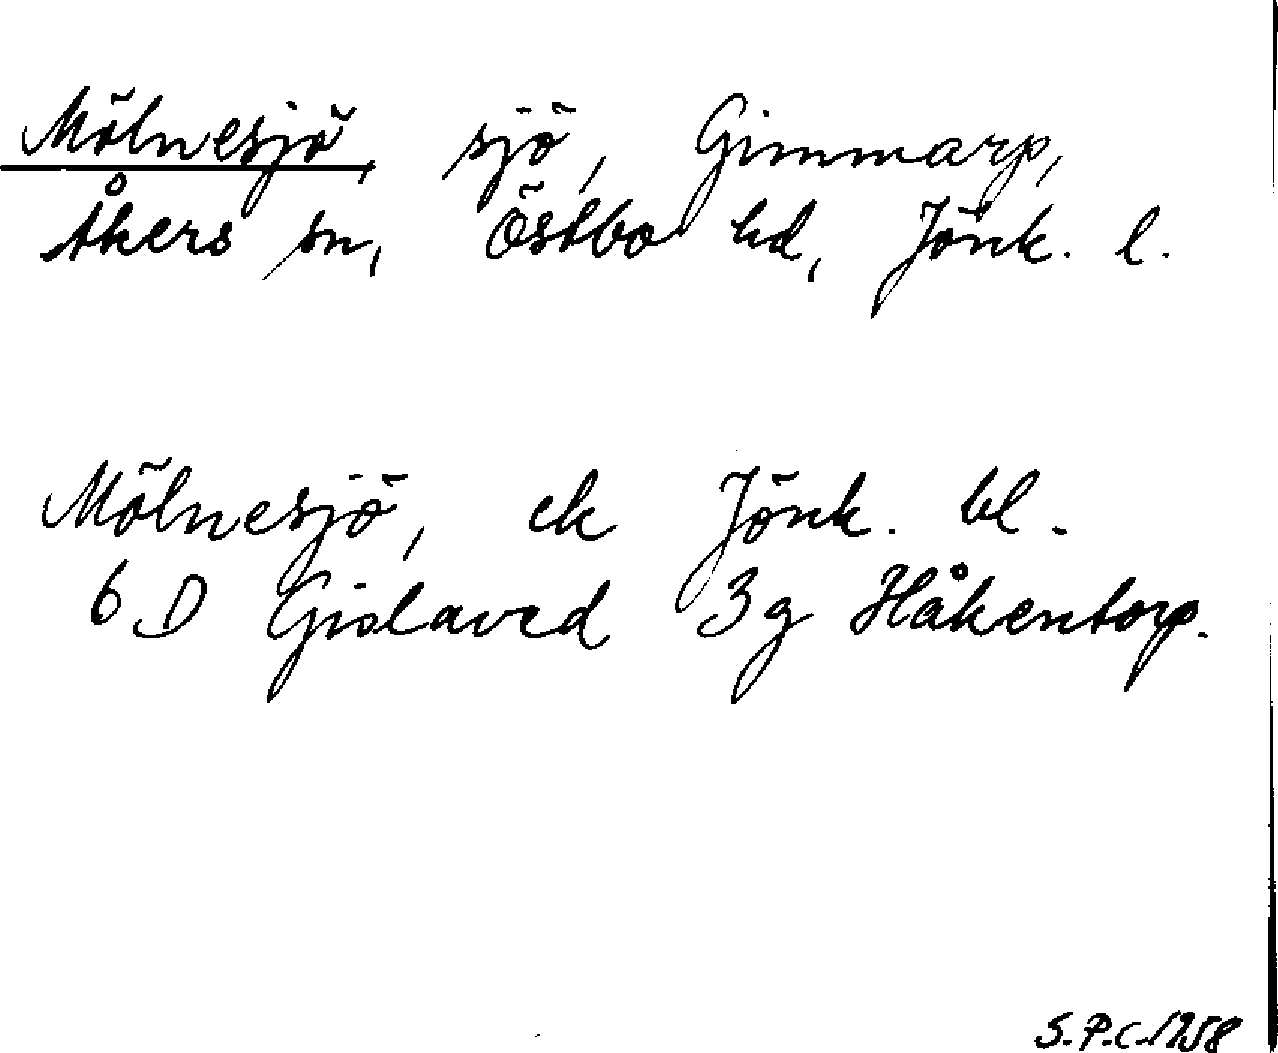 Mölnesjö, sjö, Gimmarp,
Åkers sn, Östbo hd, Jönk. l.
Mölnesjö, ek Jönk. bl.
6 D Gislaved 3g Håkentorp.
S.P.C. 1958